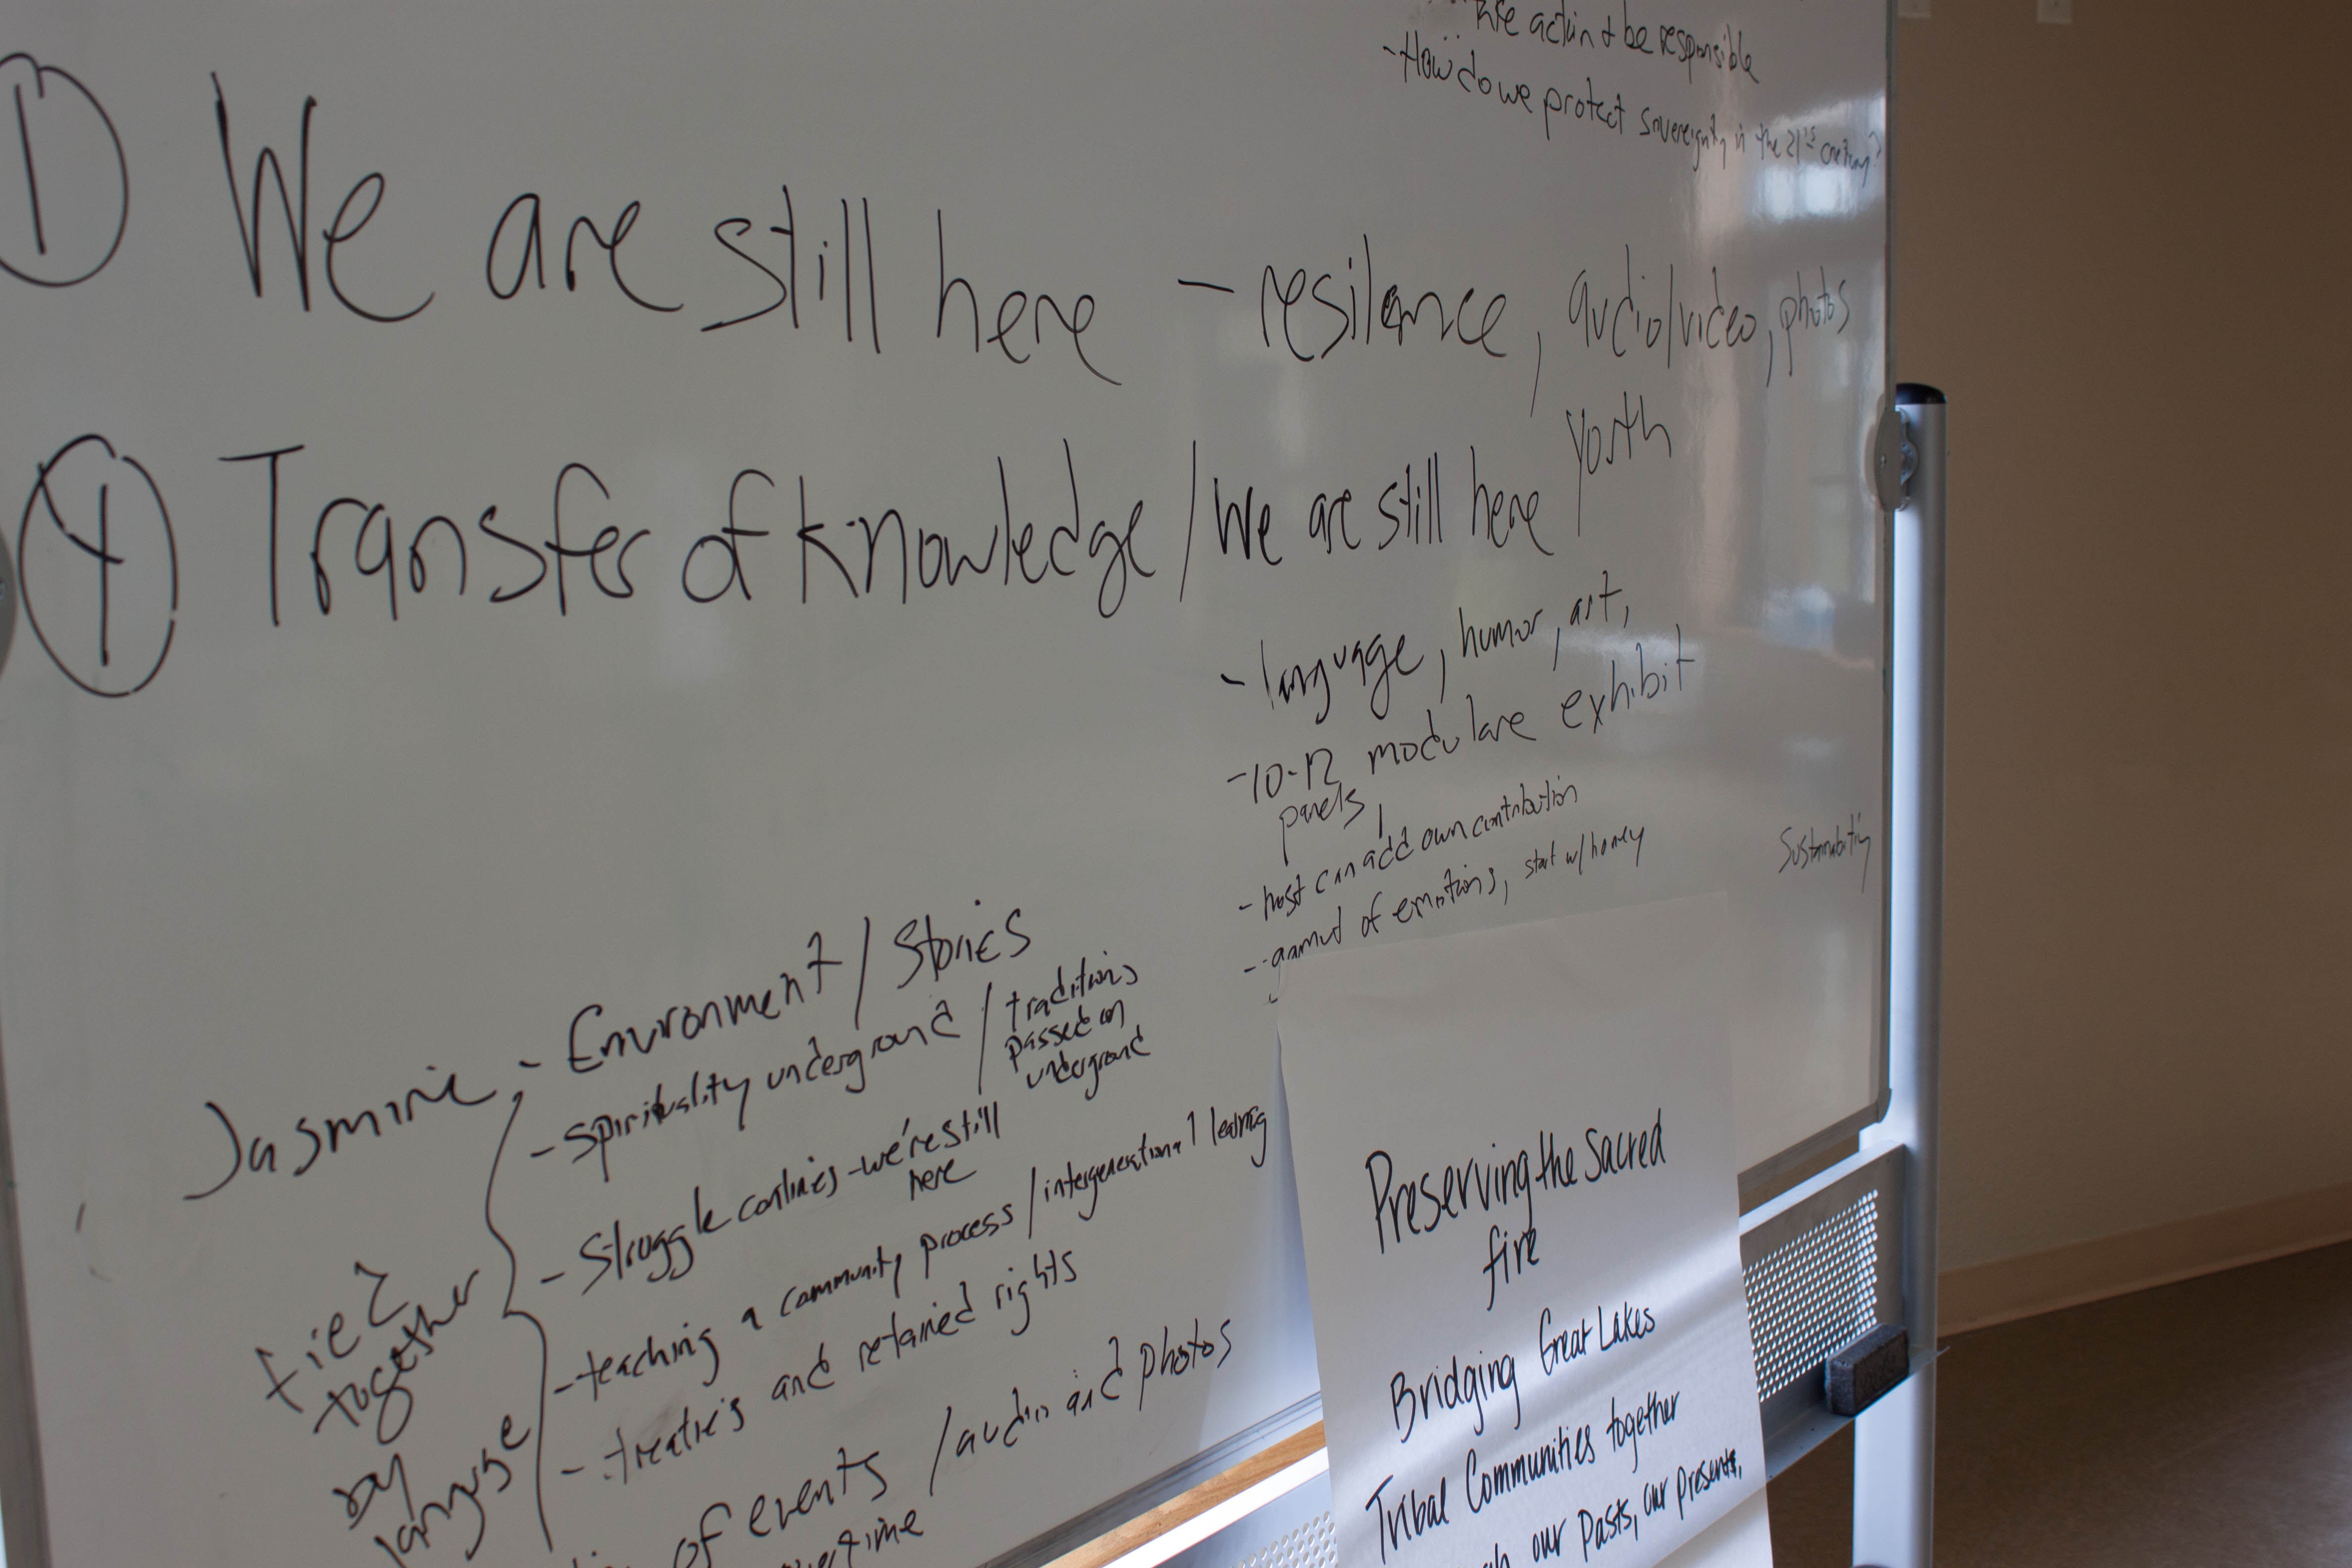 action & be responsible
-How do we protect sovereignty in the 21st century?
① We are still here - resilance, audio/video, photos
youth
④ Transfer of knowledge / We are still here
- language, humor, art,
-10-12 modulare exhibit
panels,
- host can add own contribution
- gamut of emotions, start w/ honey
Sustainability
Jasmine - Environment / Stories
- Spirituality underground / traditions
passed on
underground
- Struggle continues - we're still
here
- teaching a community process / intergenerational learning
- treaties and retained rights
of events / audio and photos
time
tie 2
together
by
language
Preserving the Sacred
fire
Bridging Great Lakes
Tribal Communities together
our pasts, our presents,